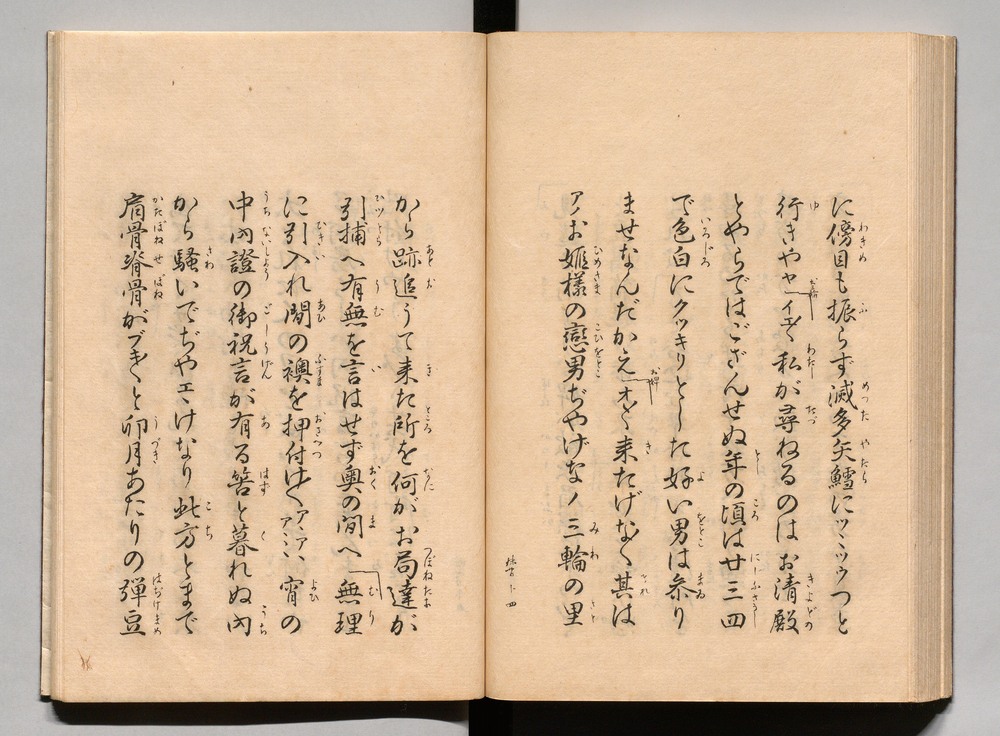 に傍目も振らず滅多矢鱈にツヽツウつと
行きやヤイ〳〵私が尋ねるのはお清殿
とやらではござんせぬ年の頃は廿三四
で色白にクッキりとした好い男は参り
ませなんだかえオヽ〳〵来たげな〳〵其は
アノお姫様の戀男ぢやげなノ三輪の里
から跡追うて来た所を何がお局達が
引捕へ有無を言はせず奥の間へ無理
に引入れ閨の襖を押付け〳〵アヽアヽ宵の
中內證の御祝言が有る筈と暮れぬ內
から騒いでぢやエヽけなり此方とまで
肩骨脊骨がヅキ〳〵と卯月あたりの弾豆